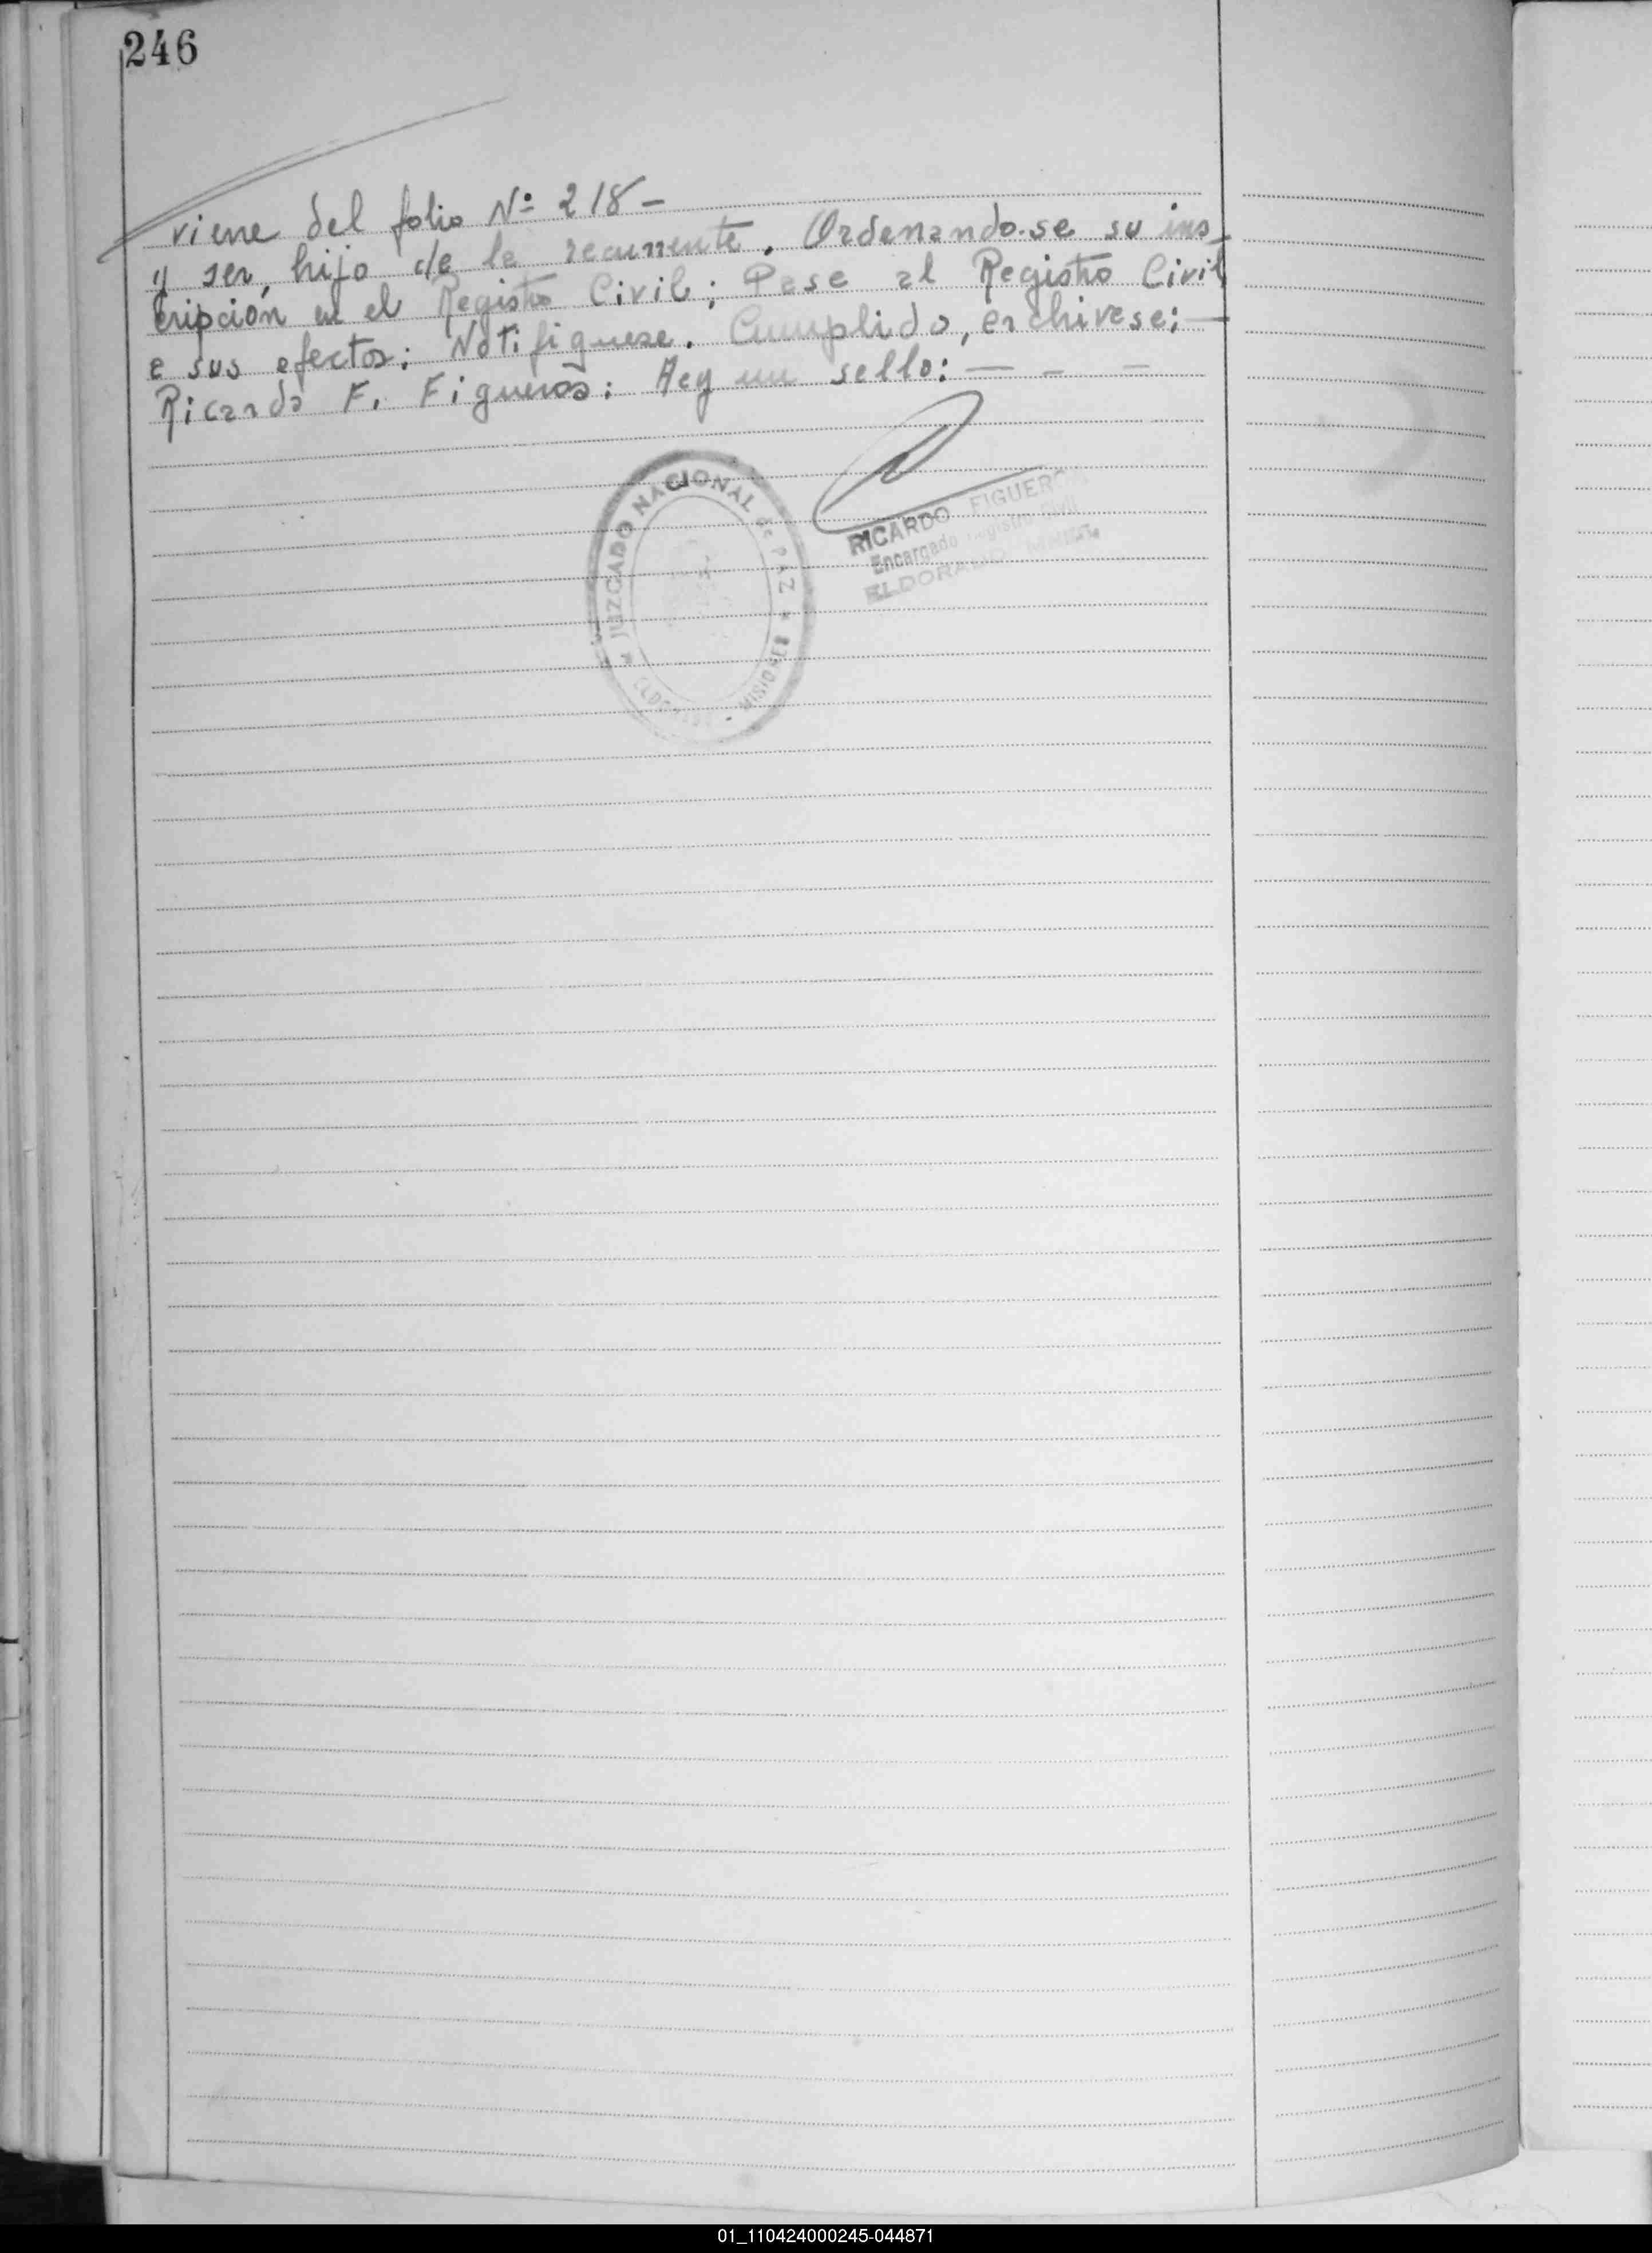 246
viene del folio Nº 218-
y ser, hijo de la recurrente. Ordenando.se su ins-
cripción en el Registro Civil; Pase al Registro Civil
a sus efectos: Notifiquese. Cumplido, archivese; —
Ricardo F. Figueroa: Hay un sello: — - —
JUZGADO NACIONAL de PAZ * ELDORADO - MISIONES *
RICARDO FIGUEROA
Encargado Registro Civil
ELDORADO
01_110424000245-044871